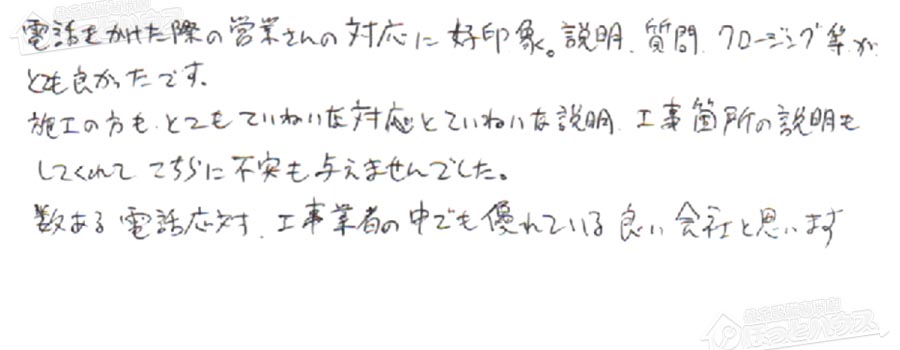 電話をかけた際の営業さんの対応に好印象。説明、質問、クロージング等が
とても良かったです。
施工の方も、とてもていねいな対応とていねいな説明、工事箇所の説明も
してくれて こちらに不実も与えませんでした。
数ある電話応対、工事業者の中でも優れている良い会社と思います
住宅設備専門店
ほっとハウス